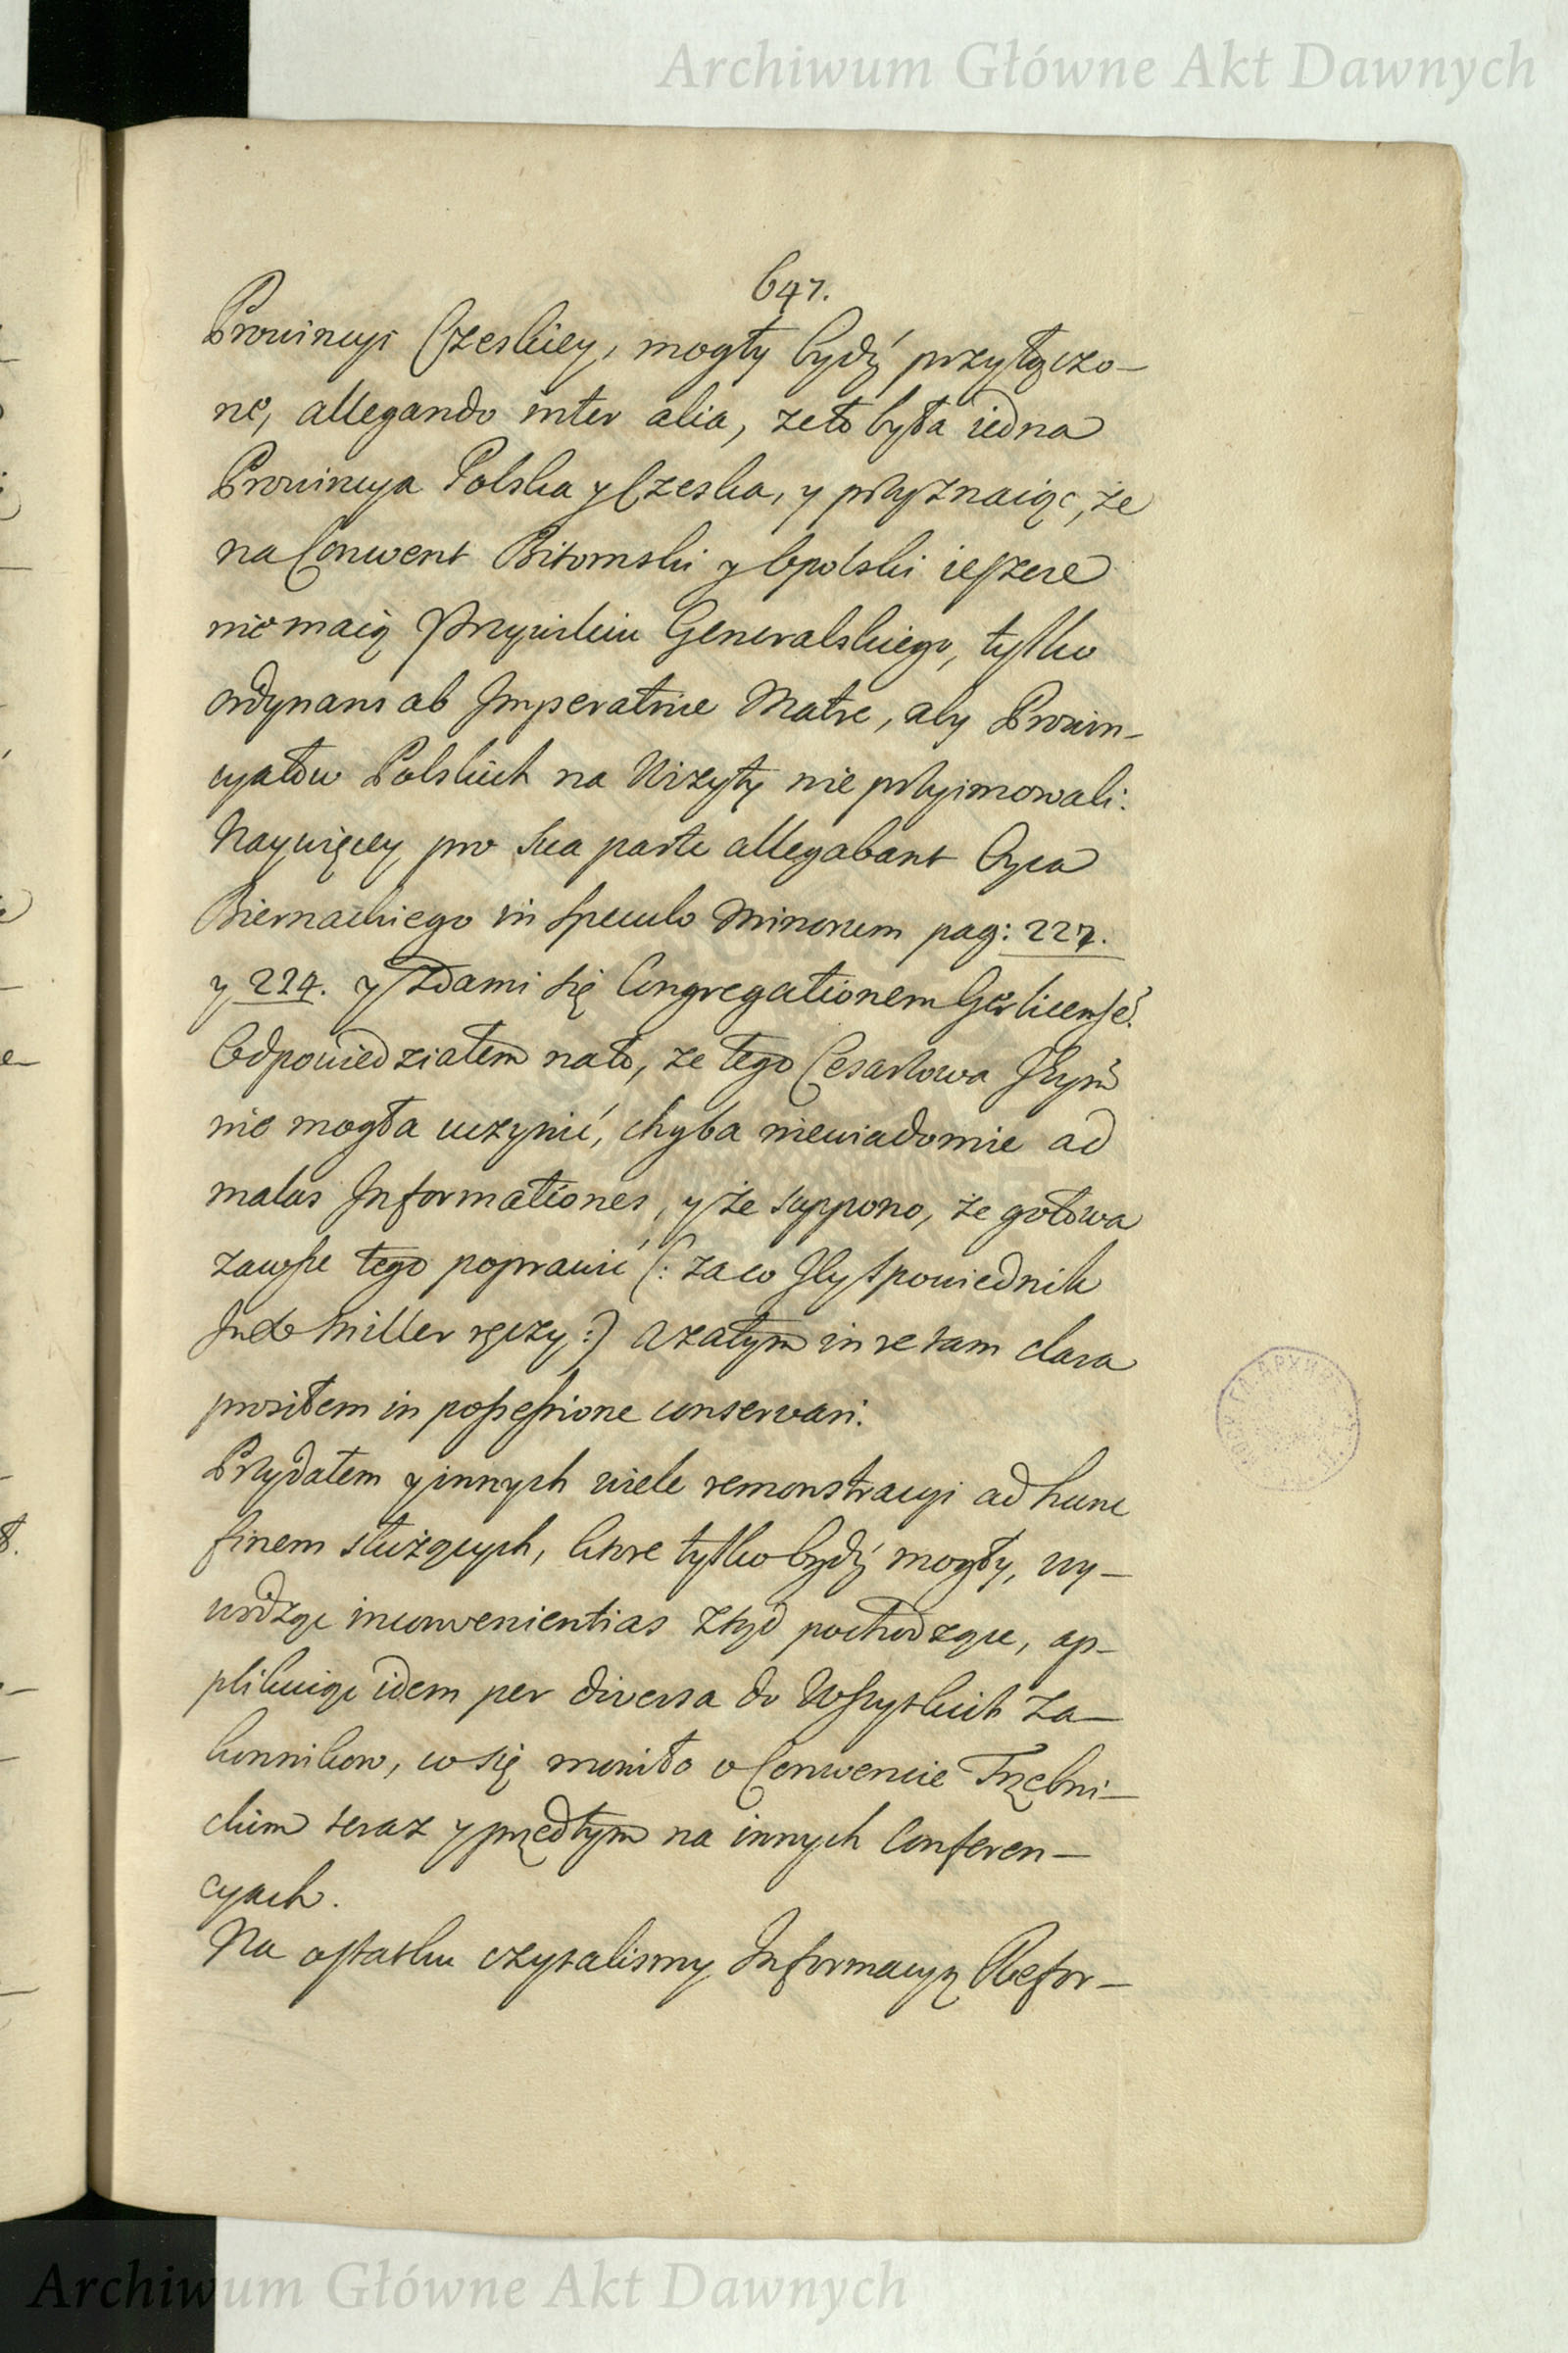 Archiwum Główne Akt Dawnych
647.
Prowincyi Czeskiey, mogły bydź przyłączo-
ne, allegando inter alia, że to była iedna
Prowincya Polska y Czeska, y przyznaiąc, że
na Conwent Bitomski y Opolski ieszcze
nie maią Przywileiu Generalskiego, tylko
ordynans ab Imperatrice Matre, aby Prowin-
cyałow Polskich na Wizyty nie przyimowali.
Naywięcey pro sua parte allegabant Oyca
Biernackiego in speculo Minorum pag: 227.
y 224. y zdami się Congregationem Görlicensē.
Odpowiedziałem na to, że tego Cesarzowa Jeym̃
nie mogła uczynić, chyba niewiadomie ad
malas Informationes, y że suppono, że gotowa
zawsze tego poprawić (: za co Jey Spowiednik
Miller ręczy :) a zatym in re tam clara
prosiłem in possessione conservari.
Przydałem y innych wiele remonstracyi ad hunc
finem służących, ktore tylko bydź mogły, wy-
wodząc inconvenientias ztąd pochodzące, ap-
plikuiąc idem per diversa do Wszystkich Za-
konnikow, co się moniło o Conwencie Trzebni-
ckim teraz y przedtym na innych Conferen-
cyach.
Na ostatku czytalismy Informacyą Refor-
Archiwum Główne Akt Dawnych